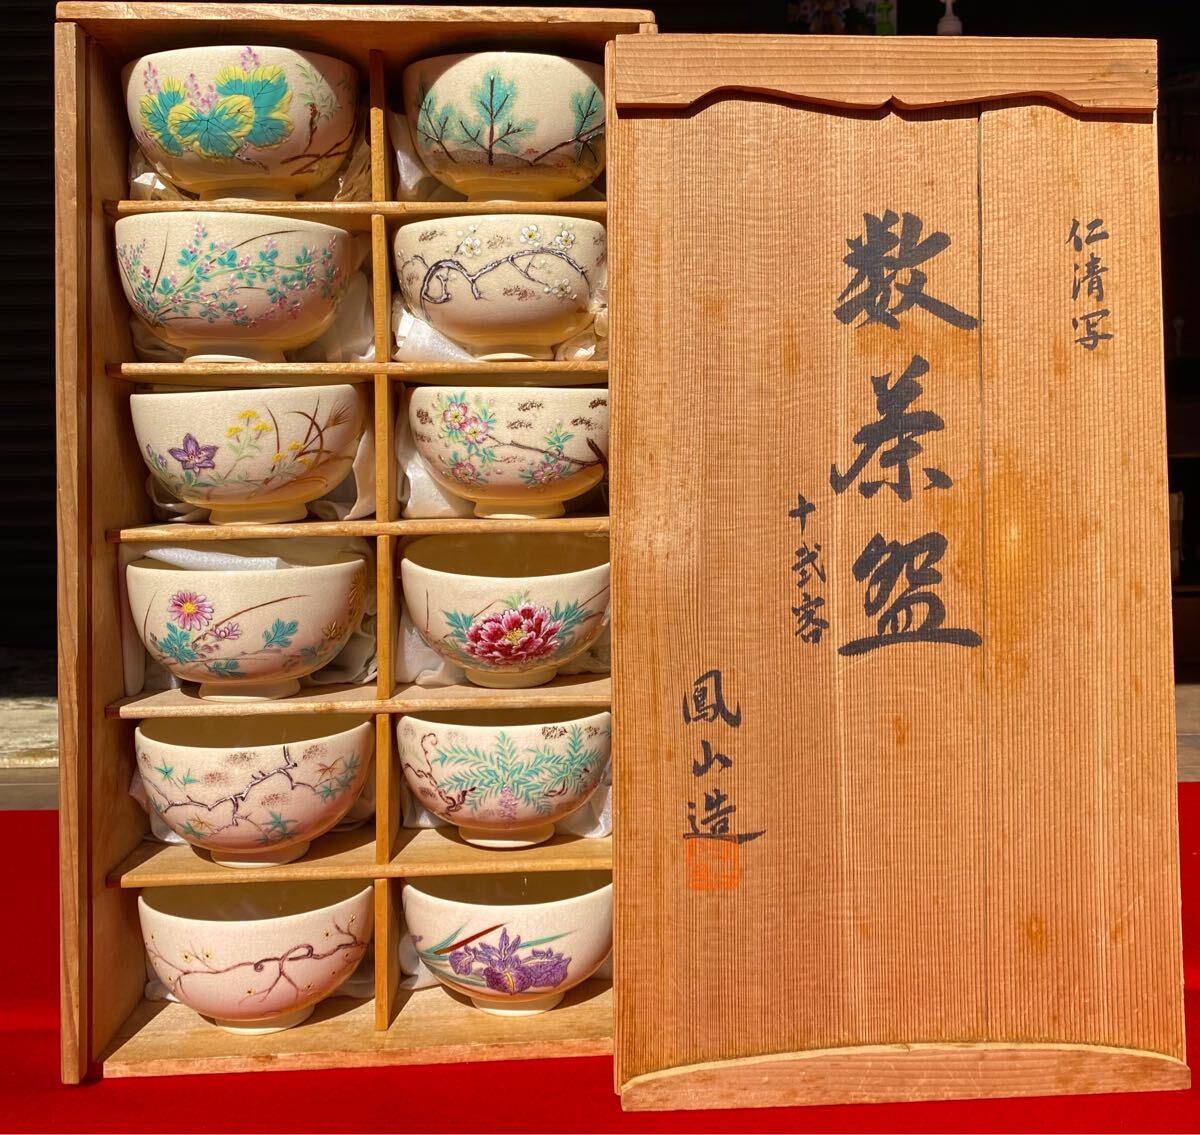 仁清写
数茶盌
十弐客
鳳山造